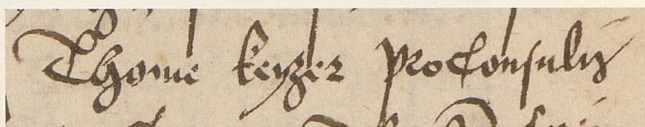 Thome Keyzer proConsulis